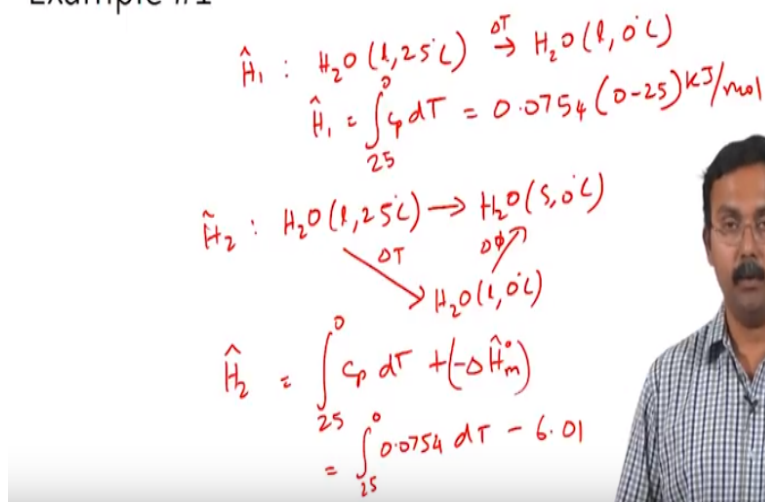 Example #1
Ĥ₁ : H₂O (l, 25°C) ΔT→ H₂O (l, 0°C)
Ĥ₁ = ∫₂₅⁰ Cp dT = 0.0754 (0-25) kJ/mol
Ĥ₂ : H₂O (l, 25°C) → H₂O (s, 0°C)
ΔT Δφ
H₂O (l, 0°C)
Ĥ₂ = ∫₂₅⁰ Cp dT + (-ΔĤ°m)
= ∫₂₅⁰ 0.0754 dT - 6.01